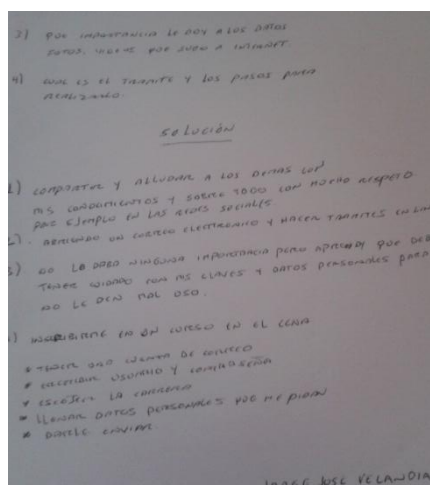 3) QUE IMPORTANCIA LE DOY A LOS DATOS
FOTOS, VIDEOS QUE SUBO A INTERNET.
4) CUAL ES EL TRAMITE Y LOS PASOS PARA
REALIZARLO.
SOLUCIÓN
1) COMPARTIR Y ALLUDAR A LOS DEMAS CON
MIS CONOCIMIENTOS Y SOBRE TODO CON MUCHO RESPETO
POR EJEMPLO EN LAS REDES SOCIALES.
2). ABRIENDO UN CORREO ELECTRONICO Y HACER TRAMITES EN
3) NO LE DABA NINGUNA IMPORTANCIA PERO APRENDI QUE
TENER CUIDADO CON MIS CLAVES Y DATOS PERSONALES PARA
NO LE DEN MAL USO.
) INSCRIBIRME EN UN CURSO EN EL
* TENER UNA CUENTA DE CORREO
* ESCRIBIR USUARIO Y CONTRASEÑA
* ESCOJER LA CARRERA
* LLENAR DATOS PERSONALES QUE ME PIDAN
* DARLE ENVIAR
JORGE JOSE VELANDIA